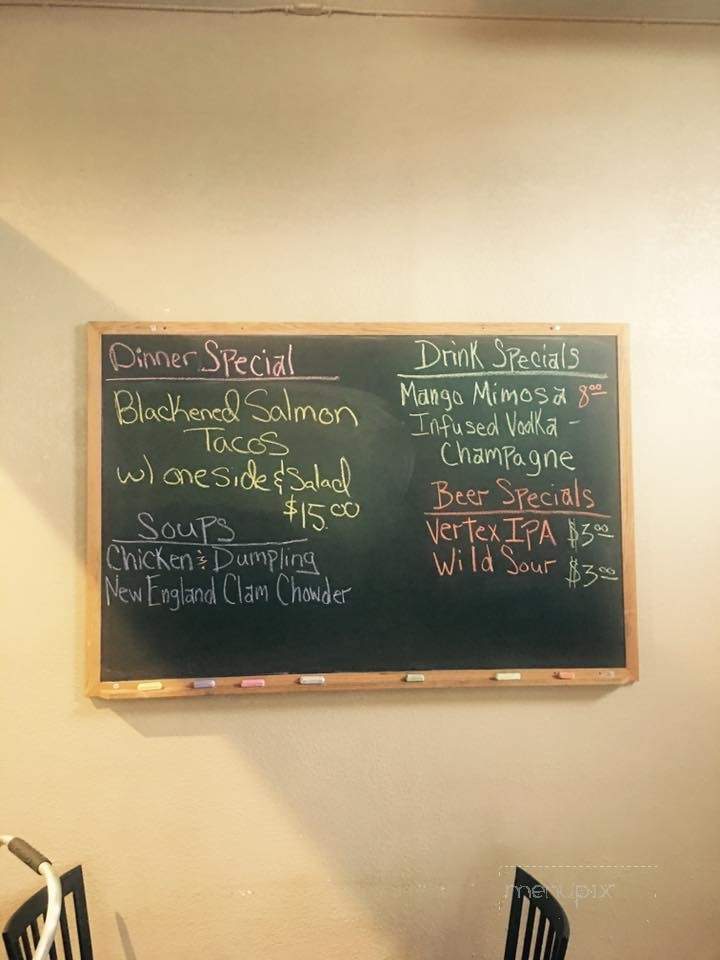 Dinner Special
Blackened Salmon
Tacos
w/ one side & Salad
$15.00
Soups
Chicken & Dumpling
New England Clam Chowder
Drink Specials
Mango Mimosa 8.00
Infused Vodka -
Champagne
Beer Specials
Vertex IPA $3.00
Wild Sour $3.00
menupix